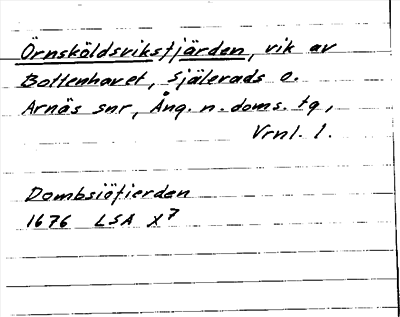 Örnsköldsviksfjärden, vik av
Bottenhavet, Själevads o.
Arnäs snr, Ång. n. doms. tg,
Vrnl. l.
Dombsiöfierden
1676 LSA X7